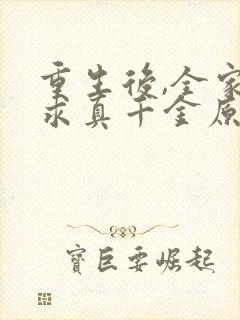 重生後,全家
求真千金原
寶巨要崛起